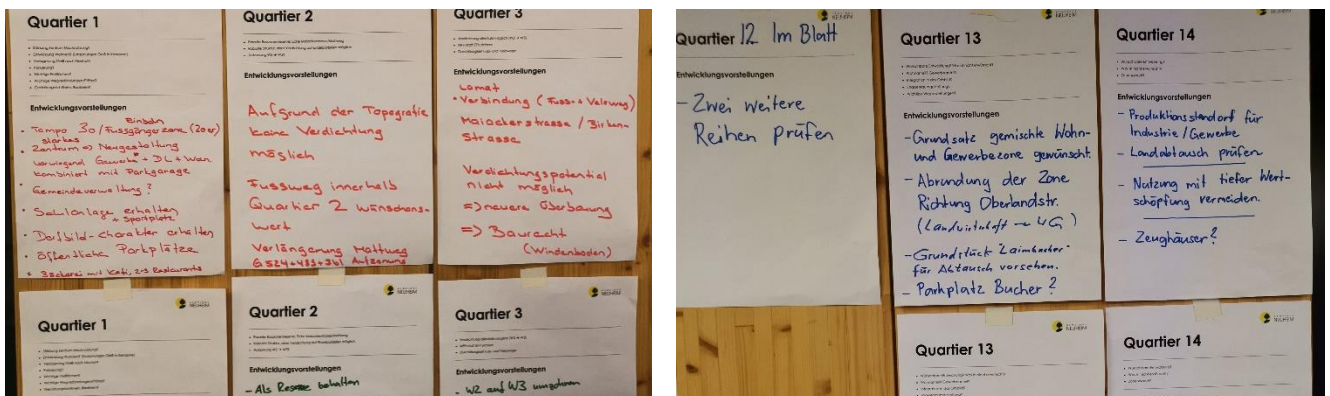 Quartier 1
Entwicklungsvorstellungen
Einbahn
• Tempo 30/Fussgängerzone (20er)
starkes
• Zentrum => Neugestaltung
vorwiegend Gewerbe + DL + Wan
kombiniert mit Parkgarage
• Gemeindeverwaltung?
• Schulanlage erhalten
+ Sportplatz
• Dorfbild-charakter erhalten
• öffentliche Parkplätze
• Bäckerei mit Kafi, 2-3 Restaurants
Quartier 2
Entwicklungsvorstellungen
Aufgrund der Topografie
keine Verdichtung
möglich
Fussweg innerhalb
Quartier 2 wünschens-
wert
Verlängerung Mattweg
Aufzonung
Quartier 3
Entwicklungsvorstellungen
• Verbindung (Fuss- + Veloweg)
Maiackerstrasse / Birken-
strasse
Verdichtungspotential
nicht möglich
=> neuere Überbauung
=> Baurecht
(Windenboden)
Quartier 1
Quartier 2
Entwicklungsvorstellungen
- Als Reserve behalten
Quartier 3
Entwicklungsvorstellungen
- W2 auf W3 umzonen
Quartier 12 Im Blatt
Entwicklungsvorstellungen
- Zwei weitere
Reihen prüfen
Quartier 13
Entwicklungsvorstellungen
- Grundsatz gemischte Wohn-
und Gewerbezone gewünscht.
- Abrundung der Zone
Richtung Oberlandstr.
(Landwirtschaft → WG)
- Grundstück Laimbacher
für Abtausch vorsehen.
- Parkplatz Bucher?
Quartier 14
Entwicklungsvorstellungen
- Produktionsstandort für
Industrie/Gewerbe
- Landabtausch prüfen
- Nutzung mit tiefer Wert-
schöpfung vermeiden.
- Zeughäuser?
NEUHEIM
Quartier 13
NEUHEIM
Quartier 14